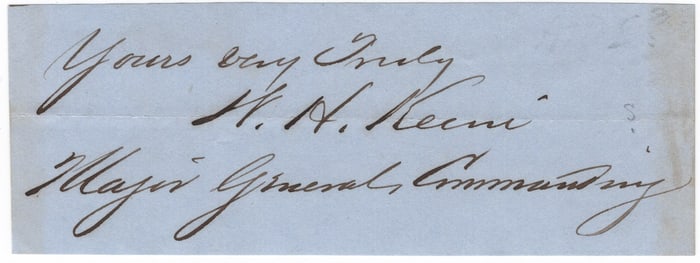 Yours very Truly
W. H. Keim
Major General, Commanding